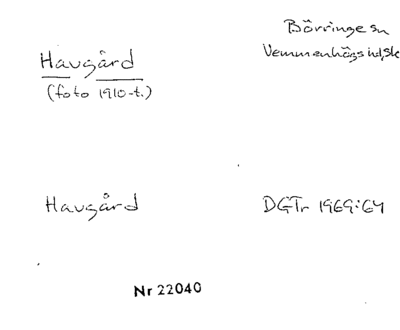 Börringe sn
Vemmenhögs hd, Sk
Havgård
(foto 1910-t.)
Havgård
DGTr 1969:64
Nr 22040